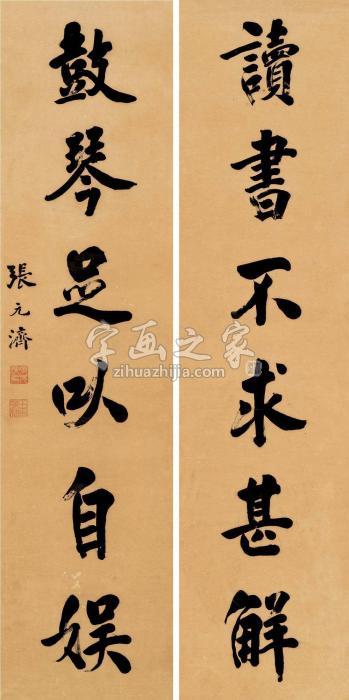 讀書不求甚解
鼓琴足以自娱
張元濟
字画之家
zihuazhijia.com